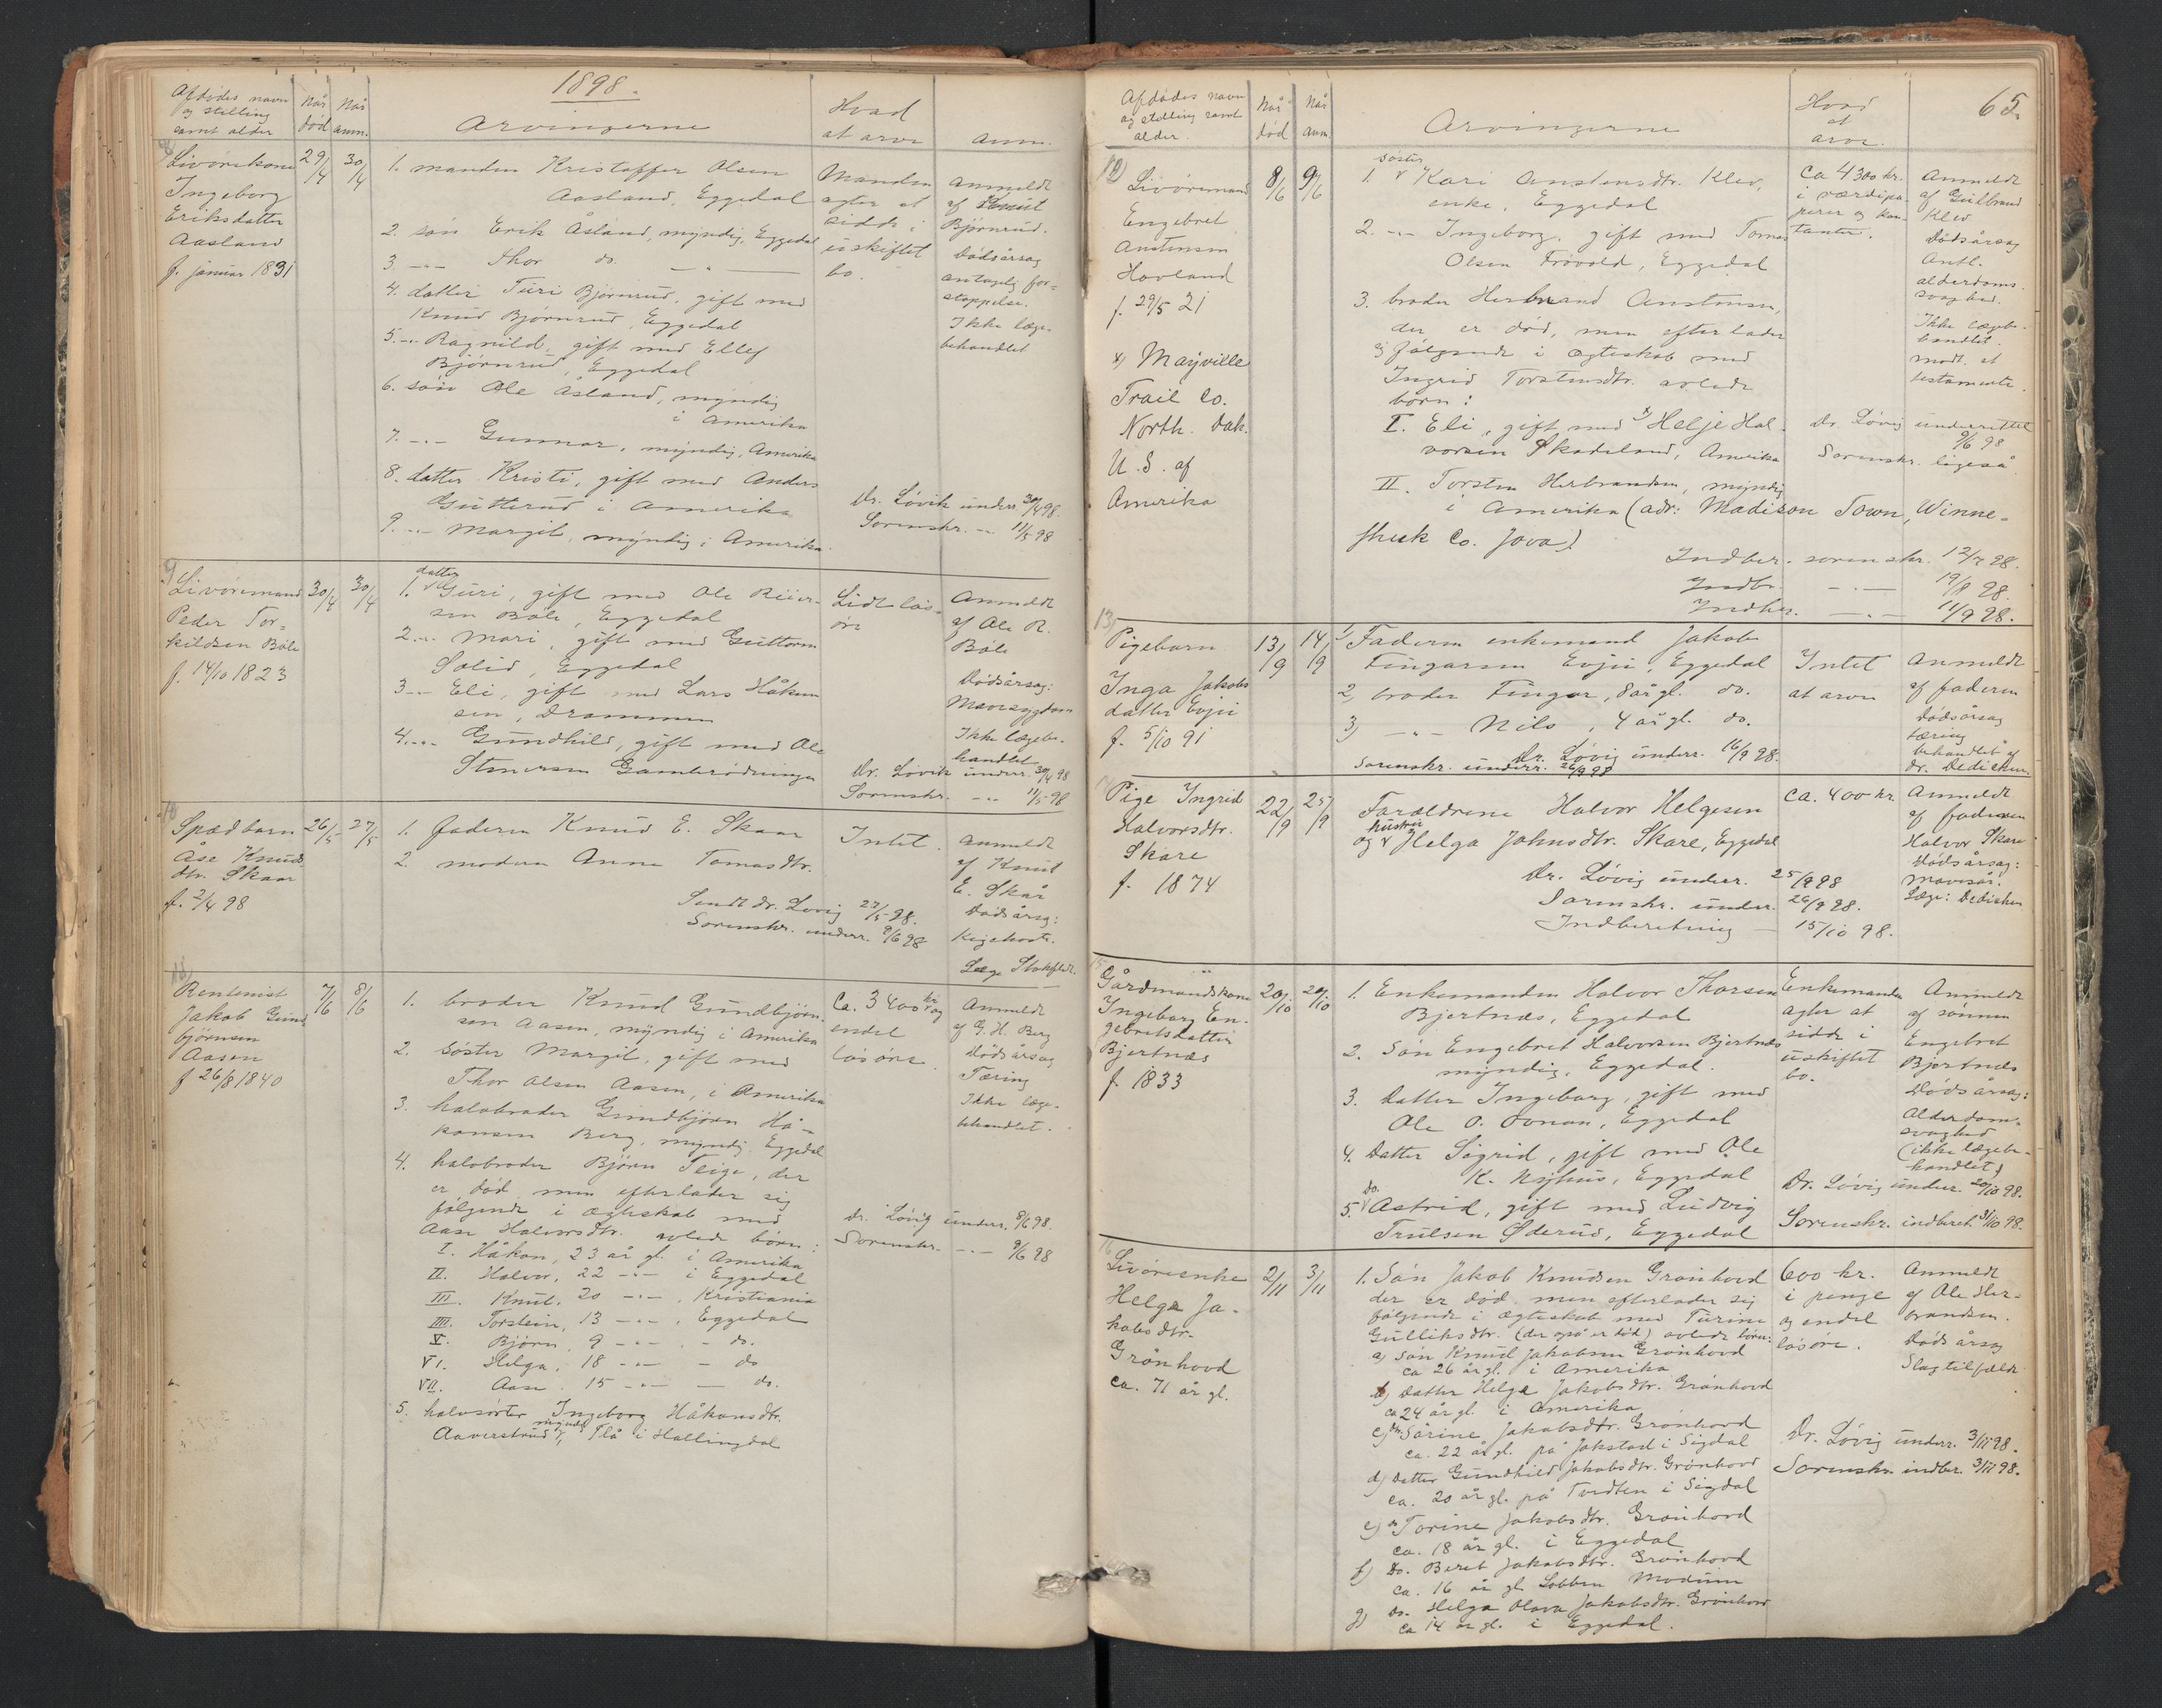 1898.
Afdødes navn og stilling samt alder
Når død
Når anm.
Arvingerne
Hvad at arve
Anm.
8)
Livørekone
Ingeborg
Eriksdatter
Aasland
f. januar 1831
29/4
30/4
1. manden Kristoffer Olsen
Aasland, Eggedal
2. søn Erik Åsland, myndig, Eggedal
3. -"- Thor do. -"-
4. datter Turi Bjørnrud, gift med
Knud Bjørnrud, Eggedal
5. -"- Ragnild, gift med Ellef
Bjørnrud, Eggedal
6. søn Ole Åsland, myndig
i Amerika
7. -"- Gunnar, myndig, Amerika
8. datter Kristi, gift med Anders
Gutterud i Amerika
9. -"- Margit, myndig i Amerika.
Manden
agter at
sidde i
uskiftet
bo.
Anmeldt
af Knut
Bjørnrud.
Dødsårsag
antagelig for=
stoppelse.
Ikke læge-
behandlet
Dr. Løvik underr. 30/4 98.
Sorenskr. -"- 11/5 98
9)
Livøremand
Peder Tor=
kildsen Bøle
f. 14/10 1823
30/4
30/4
datter
1. Guri, gift med Ole Reier-
sen Bøle, Eggedal
2. -"- Mari, gift med Guttorm
Solid, Eggedal
3. -"- Eli, gift med Lars Håken
sen, Drammen
4. -"- Gundhild, gift med Ole
Stenersen
Lidt løs-
øre
Anmeldt
af Ole R.
Bøle
Dødsårsag:
Mavesygdom
Ikke lægebe-
handlet
Dr. Løvik underr. 30/4 98
Sorenskr. -"- 11/5 98
10
Spædbarn
Åse Knuds
dtr. Skaar
f. 2/4 98
26/5
27/5
1. faderen Knud E. Skaar
2. moderen Anne Tomasdtr.
Sendt dr. Løvig 27/5 98.
Sorenskr. underr. 9/6 98
Intet.
Anmeldt
af Knut
E. Skår
Dødsårsag:
Kighoste.
Læge
11)
Rentenist
Jakob Gund
bjørnsen
Aasen
f 26/8 1840
7/6
8/6
1. broder Knud Gundbjørn-
sen Aasen, myndig i Amerika
2. søster Margit, gift med
Thor Olsen Aasen, i Amerika
3. halvbroder Gundbjørn Hå-
konsen Berg, myndig, Eggedal
4. halvbroder Bjørn Teige, der
er død men efterlader sig
følgende i ægteskab med
Aase Halvorsdtr. avlede børn:
I. Håkon, 23 år gl. i Amerika
II. Halvor, 22 -"- i Eggedal
III. Knut, 20 -"- , Kristiania
IIII. Torstein, 13 -"- , Eggedal
V. Bjørn, 9 -"- - do.
VI. Helga, 18 -"- - do
VII. Aase 15 -"- - do.
5. halvsøster Ingeborg Håkonsdtr.
Aaverstrud, myndig, Flå i Hallingdal
Ca. 3400 kr og
endel
løsøre.
Anmeldt
af G. H. Berg
Dødsårsag
Tæring
Ikke læge-
behandlet.
dr. Løvig underr. 8/6 98.
Sorenskr. -"- 9/6 98
65.
Afdødes navn og stilling samt alder.
Når død
Når anm
Arvingerne
Hvad at arve.
12)
Livøremand
Engebret
Anstensen
Hovland
f. 29/5 21
x) Mayville
Trail Co.
North. Dak.
U. S. af
Amerika
8/6
9/6
søster
1. Kari Anstensdtr. Klev,
enke, Eggedal
2. -"- Ingeborg, gift med Tomas
Olsen Trøvold, Eggedal
3. broder Herbrand Anstensen,
der er død, men efterlader
sig følgende i ægteskab med
Ingrid Torstensdtr. avlede
børn:
I. Eli, gift med x) Helje Hal-
vorsen Skadeland, Amerika
II. Torsten Herbrandsen, myndig
i Amerika (adr: Madison Town, Winne-
sheek Co. Jova)
ca 4300 kr.
i værdipa-
pirer og kon-
tanter.
Anmeldt
af Gulbrand
Klev
Dødsårsag
Antl.
alderdoms-
svaghed.
Ikke lægebe-
handlet.
Medt. et
testamente.
Dr. Løvig underrettet
9/6 98
Sorenskr. ligeså
Indber. sorenskr. 12/7 98.
Indb. -"- 19/8 98.
Indber. -"- 11/9 98.
13)
Pigebarn
Inga Jakobs
datter Evju
f. 5/10 91
13/9
14/9
1) Faderen enkemand Jakob
Fingarsen Evju, Eggedal
2) broder Fingar, 8 år gl. do.
3) -"- Nils, 4 år gl. do.
Dr. Løvig underr. 16/9 98.
Sorenskr. underr. 26/9 98
Intet
at arve
Anmeldt
af faderen
Dødsårsag
tæring
behandlet af
dr. Dedichen.
14
Pige Ingrid
Halvorsdtr.
Skare
f. 1874
22/9
25/9
Forældrene Halvor Helgesen
og hustru Helga Johnsdtr. Skare, Eggedal
Dr. Løvig underr. 25/9 98
Sorenskr. underr. 26/9 98.
Indberetning - 15/10 98.
ca. 400 kr.
Anmeldt
af faderen
Halvor Skare
Dødsårsag:
mavesår.
Læge: Dedichen
15
Gårdmandskone
Ingeborg En-
gebretsdatter
Bjertnæs
f. 1833
20/10
20/10
1. Enkemanden Halvor Thorsen
Bjertnæs, Eggedal
2. Søn Engebret Halvorsen Bjertnæs
myndig, Eggedal.
3. Datter Ingeborg, gift med
Ole O. Fonan, Eggedal
4. Datter Sigrid, gift med Ole
K. Nyhus, Eggedal
5. do. Astrid, gift med Ludvig
Trulsen Øderud, Eggedal
Enkemanden
agter at
sidde i
uskiftet
bo.
Anmeldt
af sønnen
Engebret
Bjertnæs
Dødsårsag:
Alderdoms-
svaghed
(ikke lægebe-
handlet)
Dr. Løvig underr. 20/10 98.
Sorenskr. indberet. 31/10 98.
16
Livøreenke
Helga Ja-
kobsdtr.
Grønhovd
ca. 71 år gl.
2/11
3/11
1. Søn Jakob Knudsen Grønhovd
der er død, men efterlader sig
følgende i ægteskab med Turine
Gulliksdtr. (der også er død) avlede børn:
a) søn Knud Jakobsen Grønhovd
ca 26 år gl. i Amerika
b) Datter Helga Jakobsdtr. Grønhovd
ca 24 år gl. i Amerika
c) do Sørine Jakobsdtr. Grønhovd
ca. 22 år gl. på Jokstad i Sigdal
d) Datter Gundhild Jakobsdtr. Grønhovd
ca. 20 år gl. på Tvedten i Sigdal
e) do Torine Jakobsdtr. Grønhovd
ca. 18 år gl. i Eggedal
f) Do. Beret Jakobsdtr. Grønhovd
ca. 16 år gl. Lobben Modum
g) Do. Helga Olava Jakobsdtr. Grønhovd
ca 14 år gl. i Eggedal.
600 kr.
i penge
og endel
løsøre.
Anmeldt
af Ole Her-
brandsen.
Dødsårsag
Slagtilfælde
Dr. Løvig underr. 3/11 98.
Sorenskr. indber. 3/11 98.